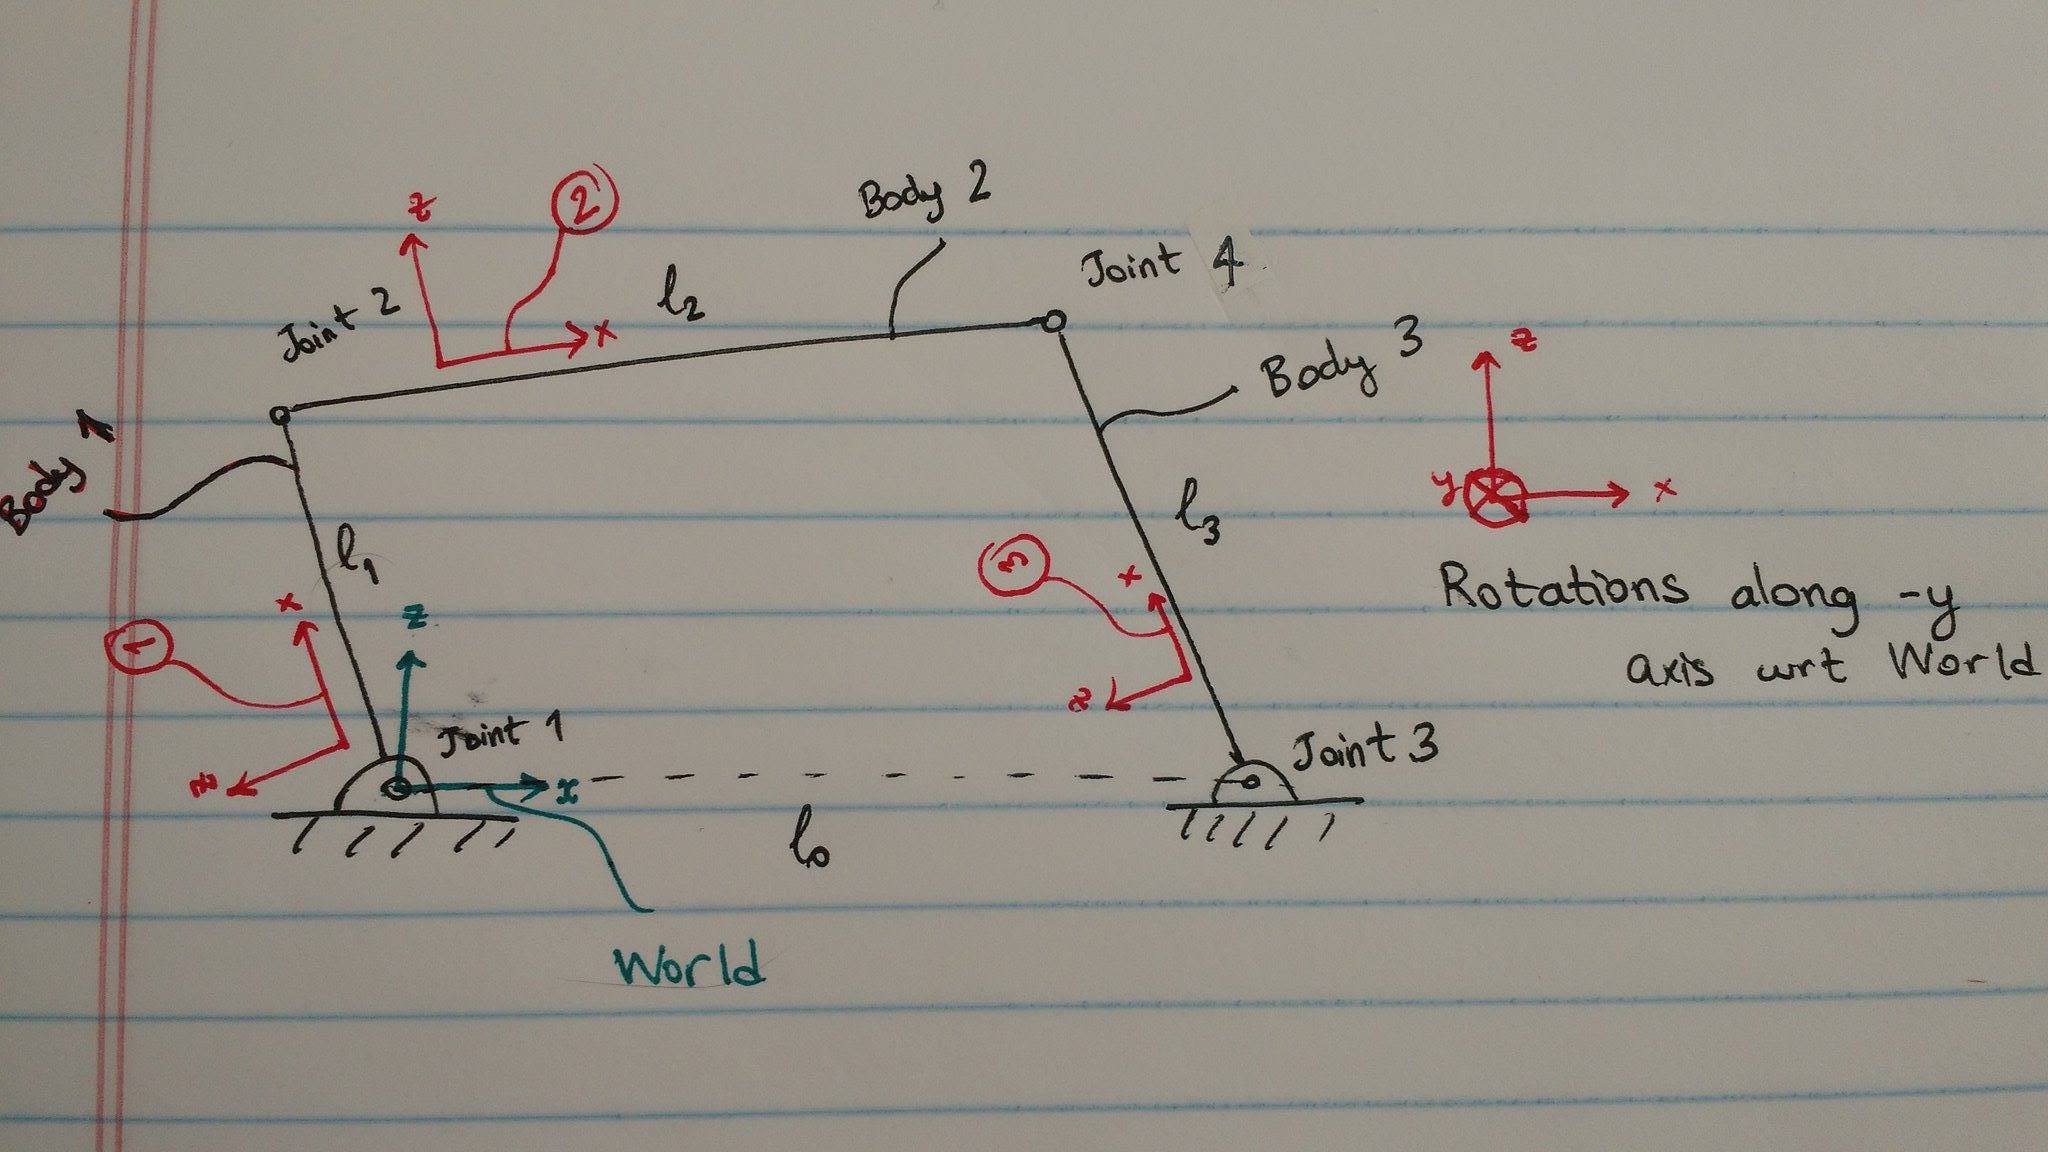 z
2
Body 2
Joint 2
x
l2
Joint 4
Body 1
Body 3
z
y
x
l1
l3
3
x
z
x
z
1
z
Joint 1
x
l0
Joint 3
Rotations along -y
axis wrt World
World